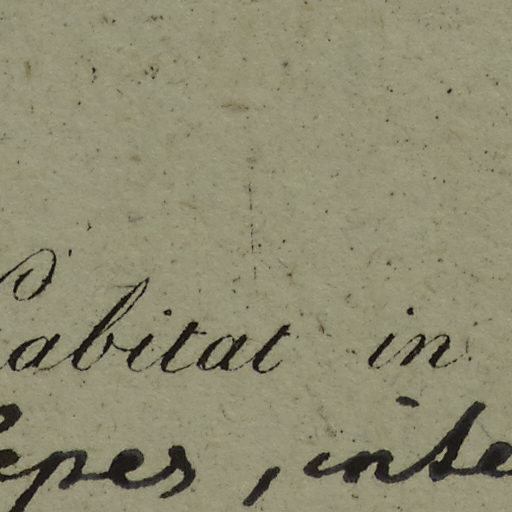 Habitat in
epes, inte